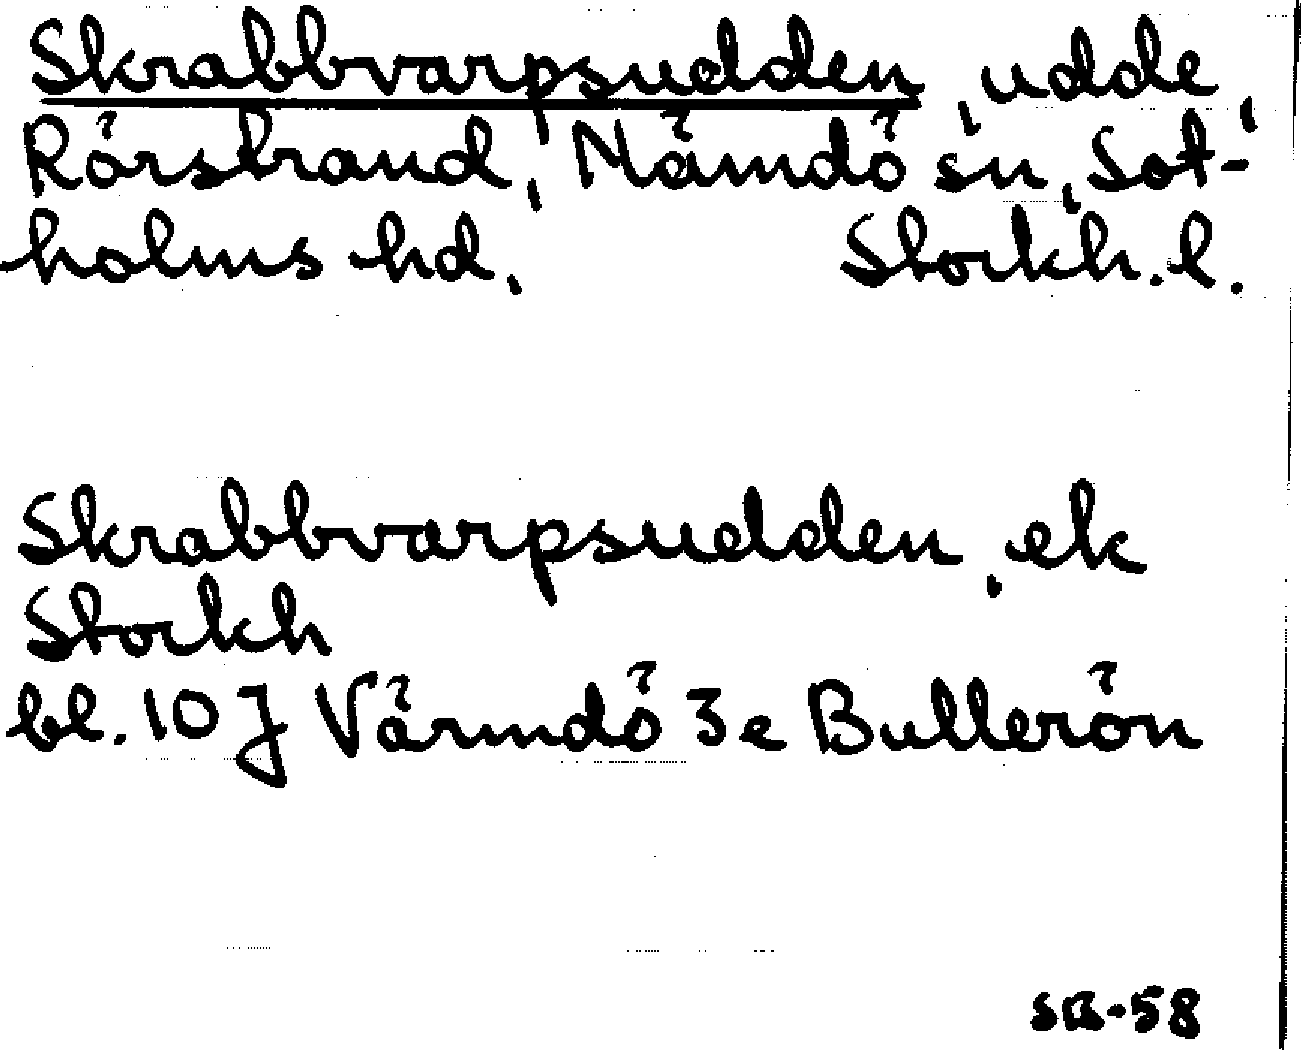 Skrabbvarpsudden, udde,
Rörstrand, Nämdö sn, Sot-
holms hd, Stockh. l.
Skrabbvarpsudden, ek
Stockh
bl. 10 J Värmdö 3e Bullerön
SR-58